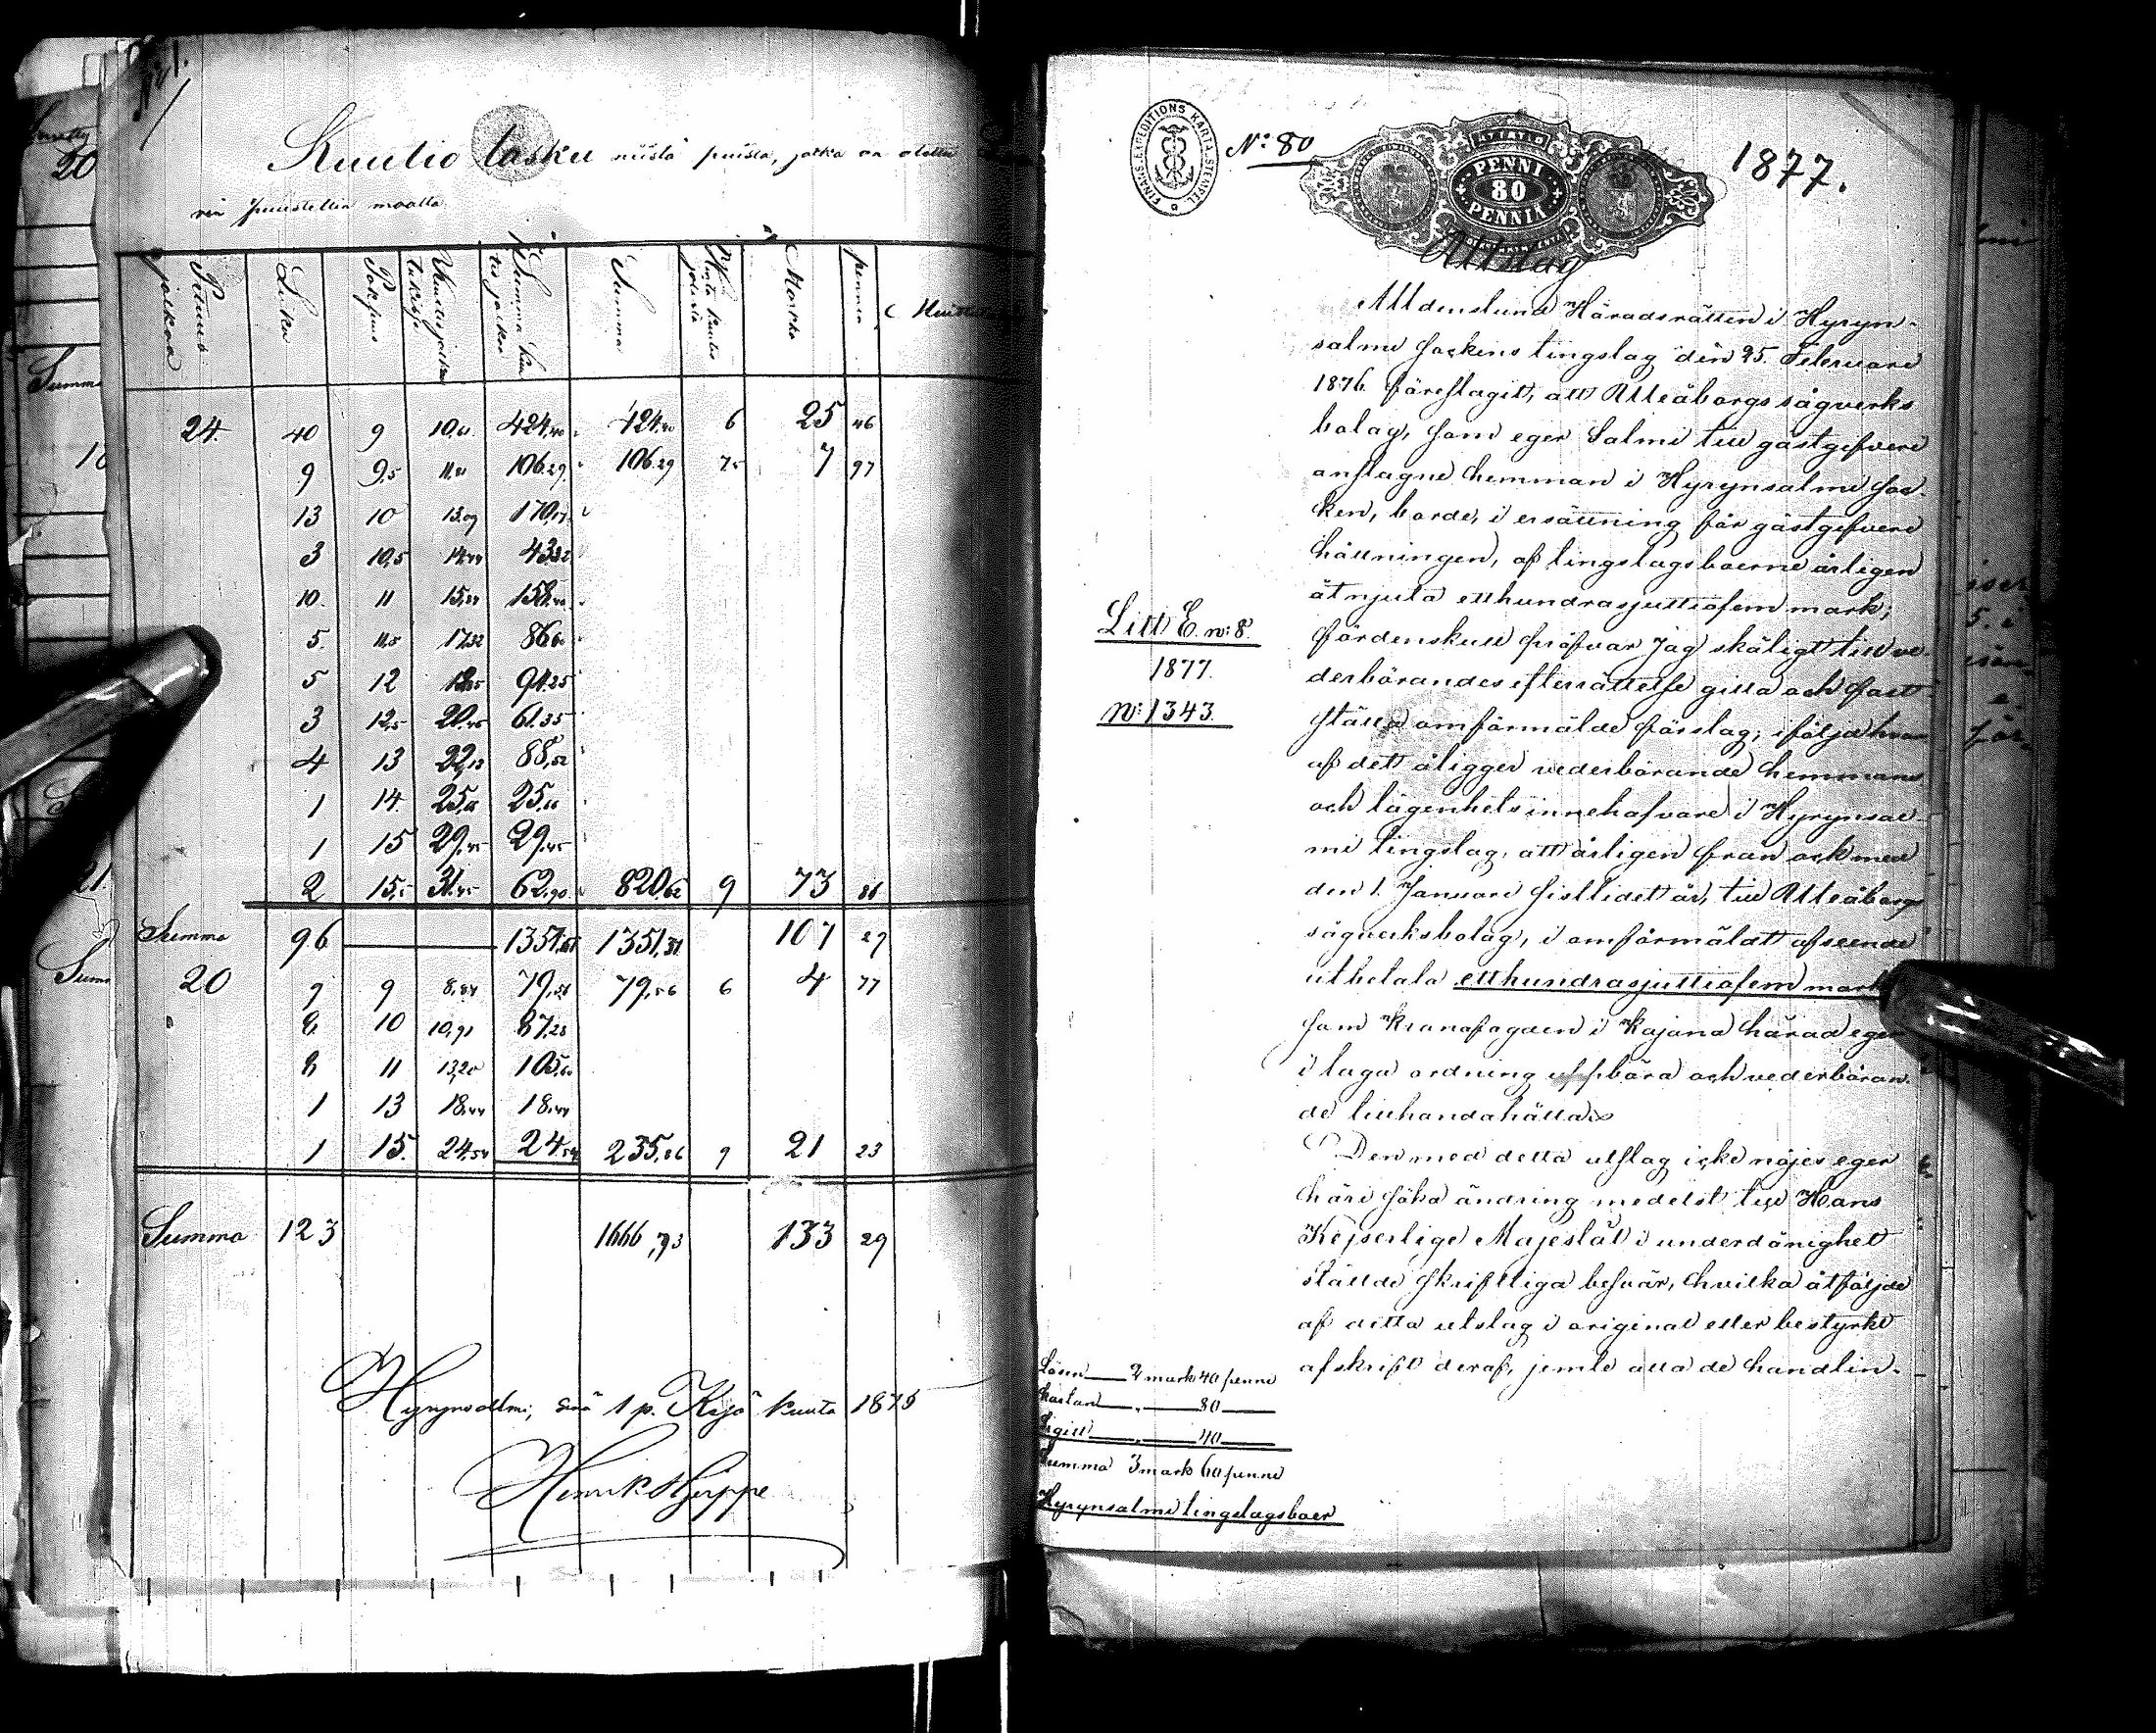 Kuutio lasku niistä puista, jotka on otettu
maalta
Pituus jalkaa	Luku	Paksuus	Kuutiojalkaa	Summa	Summa	Markka	penniä
24.	40	9	10,61	424,40	424,40	6	25	46
9	9,5	11,81	106,29	106,29	75	7	97
13	10	13,09	170,17
3	10,5	14,44	43,32
10.	11	15,84	158,40
5.	11,5	17,32	86,60
5	12	18,85	94,25
3	12,5	20,45	61,35
4	13	22,13	88,52
1	14.	25,66	25,66
1	15	29,45	29,45
2	15,5	31,45	62,90	820,62	9	73	86
Summa	96	1351,31	1351,31	107	29
20	9	9	8,84	79,56	79,56	6	4	77
8	10	10,91	87,28
8	11	13,20	105,60
1	13	18,44	18,44
1	15.	24,54	24,54	235,86	9	21	23
Summa	123	1666,73	133	29
Hyrynsalmi, 1 p. kuuta 1875
FINANS-EXPEDITIONS KARTA-STEMPEL
N: 80
PENNI
80
PENNIÄ
1877.
Utslag
Alldenstund Häradsrätten i Hyryn-
salmi sockens tingslag den 25. Februari
1876 föreslagit, att Uleåborgs sågverks
bolag, som eger Salmi till gästgifveri
anslagne hemman i Hyrynsalmi soc-
ken, borde, i ersättning för gästgifveri
hållningen, af tingslagsboerne årligen
åtnjuta etthundrasjuttiofem mark;
fördenskull pröfvar Jag skäligt till ve-
derbörandes efterrättelse gilla och fast
ställa omförmälde förslag, i följd hvar
af dett åligger vederbörande hemmans
och lägenhetsinnehafvare i Hyrynsal-
mi tingslag, att årligen från och med
den 1. Januari sistlidet år, till Uleåborgs
sågverksbolag, i omförmäldt afseende
utbetala etthundrasjuttiofem mark
som Kronofogden i Kajana härad eger
i laga ordning uppbära och vederböran-
de tillhandahålla.
Den med detta utslag icke nöjes eger
häri söka ändring medelst till Hans
Kejserlige Majestät i underdånighet
stälde skriftliga besvär, hvilka åtföljde
af detta utslag i original eller bestyrkt
afskrift deraf, jemte alla de handlin-
Litt E. n: 8.
1877.
N: 1343.
Lösen 2 mark 40 penni
Kartan " 80
Sigill " 40
Summa 3 mark 60 penni
Hyrynsalmi tingslagsboer